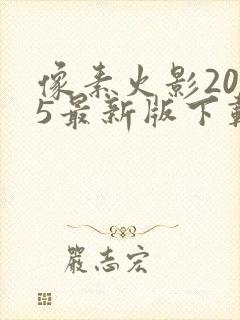 像素火影20
5最新版下载
嚴志宏